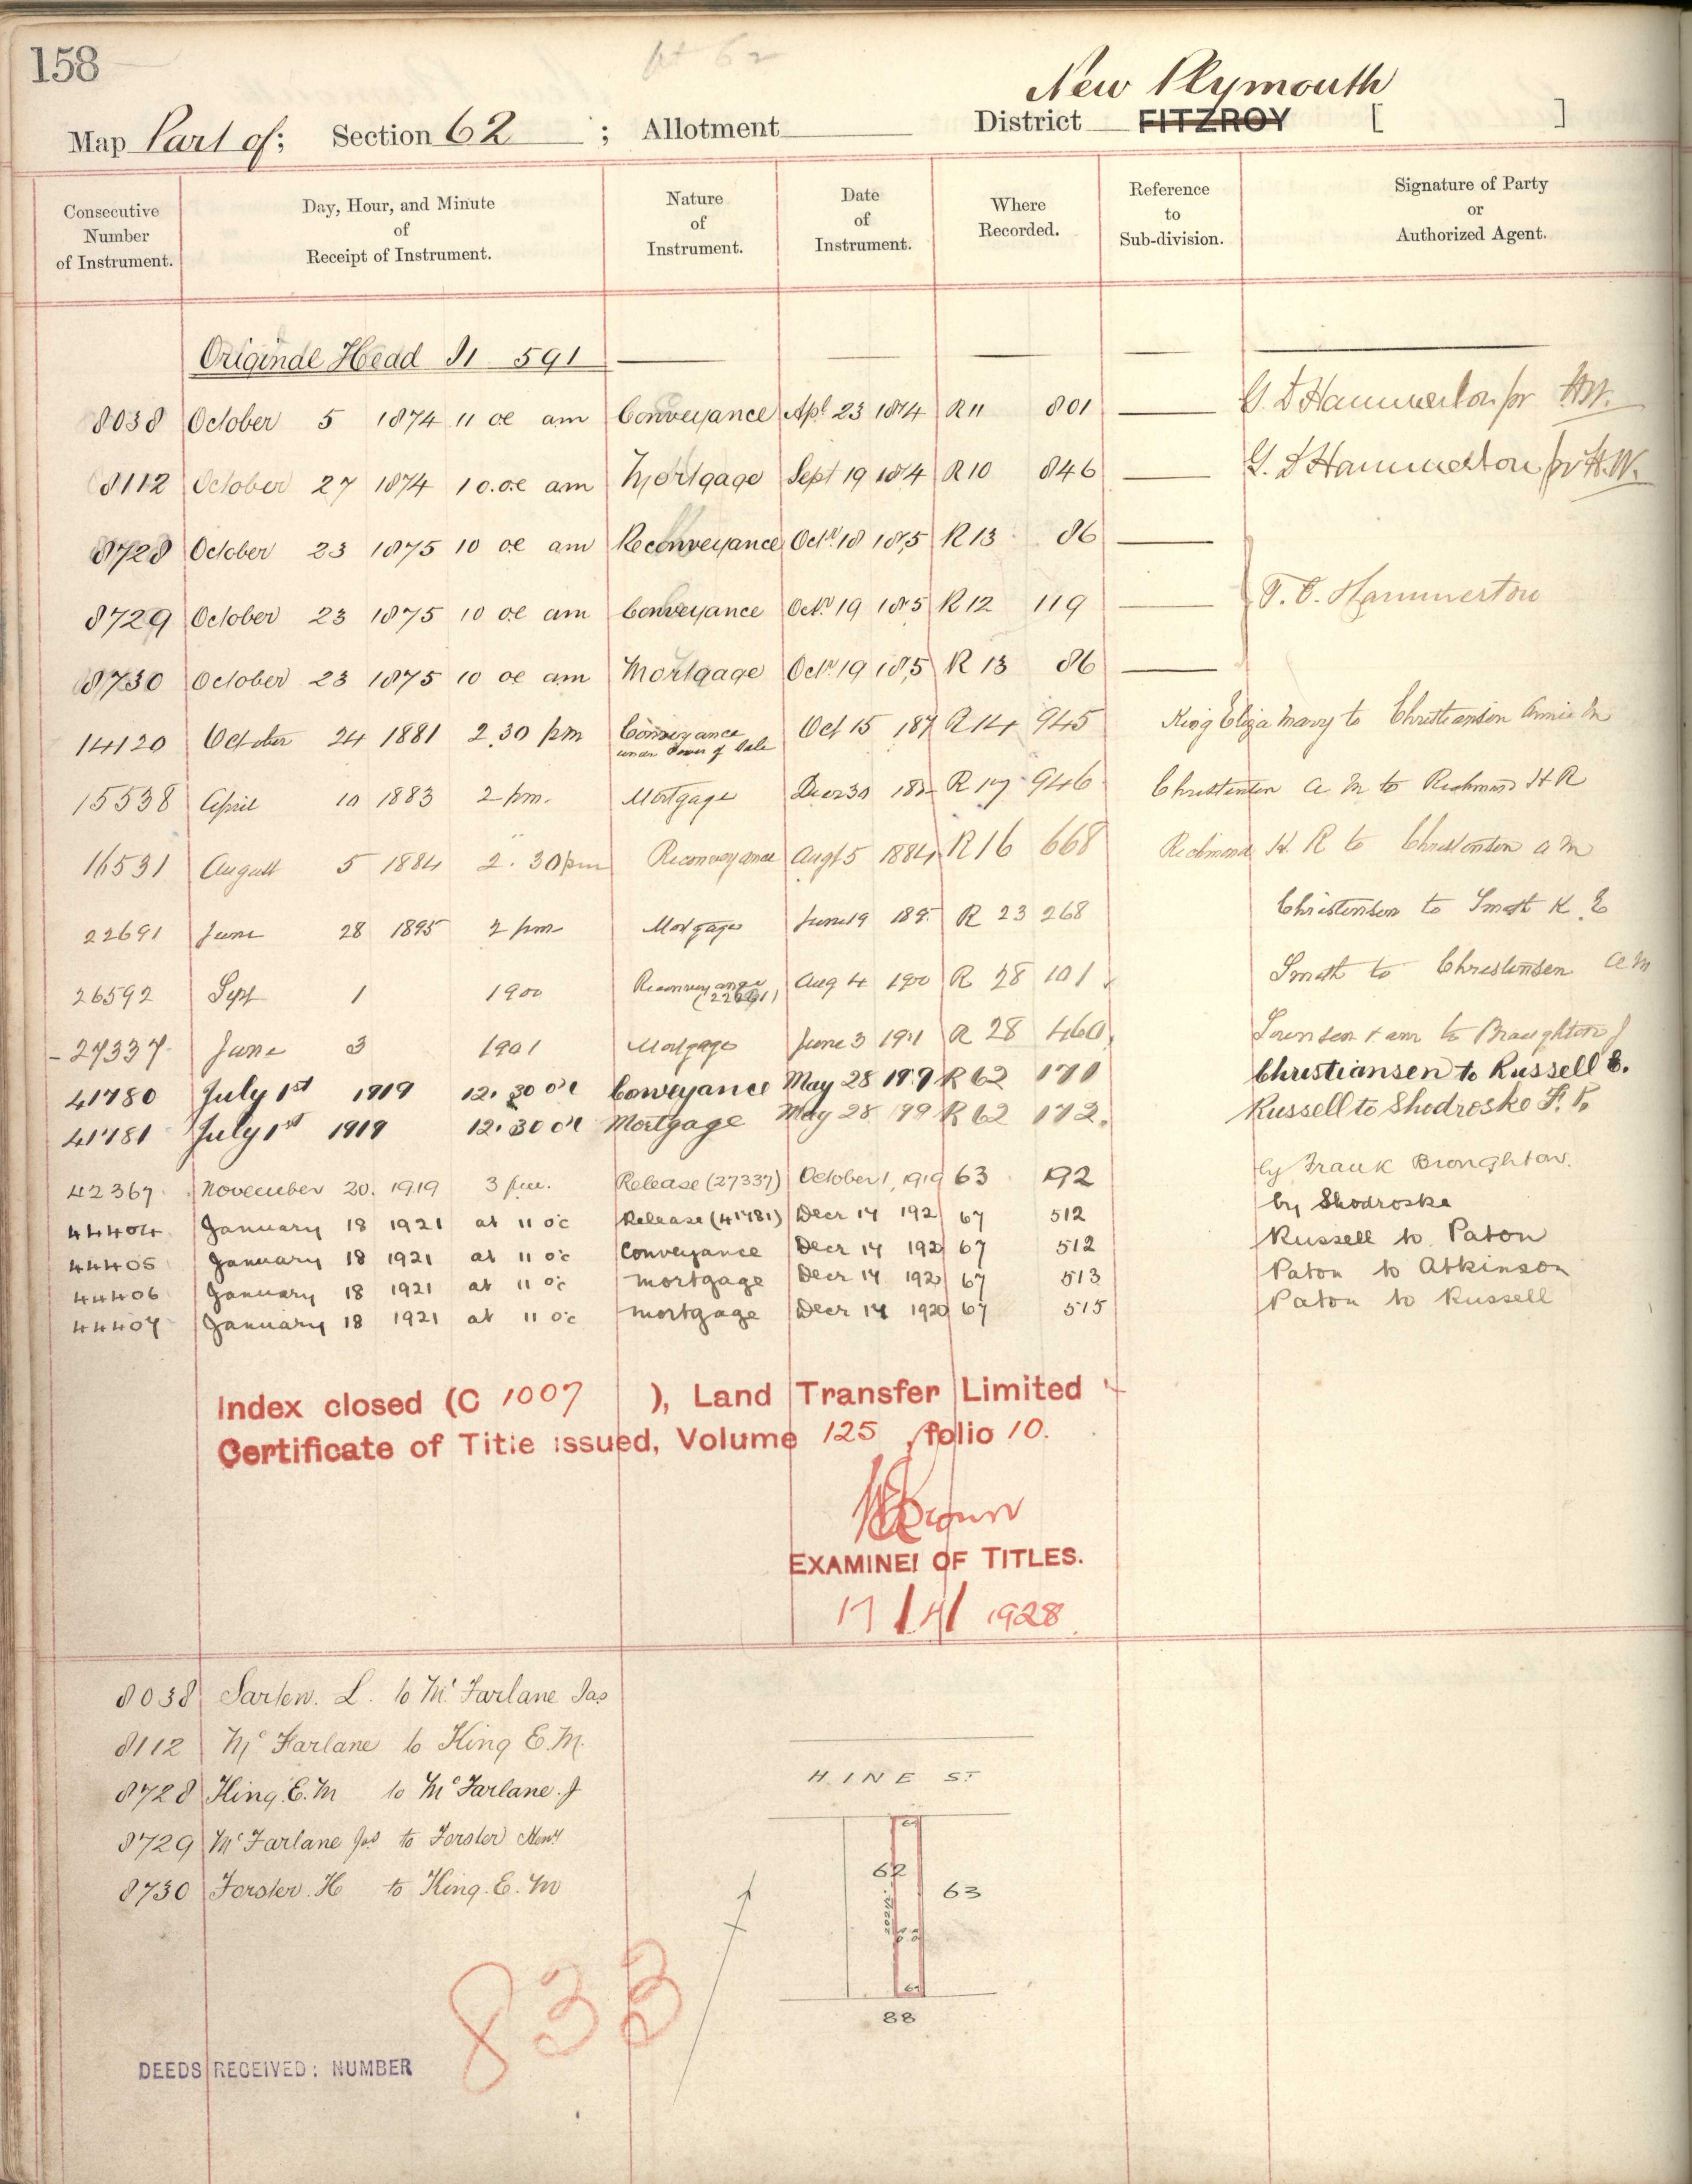 158
pt 62
New Plymouth
Map Part of; Section 62 ; Allotment District FITZROY [ ]
Consecutive Number of Instrument. Day, Hour, and Minute of Receipt of Instrument. Nature of Instrument. Date of Instrument. Where Recorded. Reference to Sub-division. Signature of Party or Authorized Agent.
Originde Head I1 591
8038 October 5 1874 11 oc am Conveyance Apl 23 1874 R11 801 G. D Hammerton for HW.
8112 October 27 1874 10.oc am Mortgage Sept 19 1874 R10 846 G. D Hammerton for H.W.
8728 October 23 1875 10 oc am Reconveyance Octr 18 1875 R13 86
8729 October 23 1875 10 oc am Conveyance Octr 19 1875 R12 119 T. E. Hammerton
8730 October 23 1875 10 oc am Mortgage Octr 19 1875 R 13 86
14120 October 24 1881 2.30 pm Conveyance under Power of Sale Oct 15 187 R14 945 King Eliza Mary to Christianson Annie M
15538 April 10 1883 2 pm. Mortgage Decr 30 188 R 17 946 Christensen A M to Richmond H R
16531 August 5 1884 2.30pm Reconveyance Augt 5 1884 R16 668 Richmond H R to Christenson A M
22691 June 28 1895 2 pm Mortgage June 19 189 R 23 268 Christensen to Smith K E
26592 Sept 1 1900 Reconveyance (22691) Aug 4 190 R 28 101 Smith to Christensen A M
27337 June 3 1901 Mortgage June 3 191 R 28 460 to Broughton J
41780 July 1st 1919 12.30 oc Conveyance May 28 199 R 62 171 Christiansen to Russell E.
41781 July 1st 1919 12.30 oc Mortgage May 28 199 R 62 172. Russell to Shodroske F. P.
42367 November 20. 1919 3 p.m. Release (27337) October 1, 1919 63 192 by Frank Broughton.
44404 January 18 1921 at 11 oc Release (41781) Decr 14 192 67 512 by Shodroske
44405 January 18 1921 at 11 oc Conveyance Decr 14 192 67 512 Russell to Paton
44406 January 18 1921 at 11 oc mortgage Decr 14 192 67 513 Paton to Atkinson
44407 January 18 1921 at 11 oc mortgage Decr 14 1920 67 515 Paton to Russell
Index closed (C 1007 ), Land Transfer Limited
Certificate of Title issued, Volume 125, folio 10.
Brown
EXAMINER OF TITLES.
17/4/1928.
8038 Sarten. L. to McFarlane Jas
8112 McFarlane to King E.M.
8728 King. E. M to McFarlane. J
8729 McFarlane Jas to Forster Heny
8730 Forster. H to King. E. M
HINE ST
62
63
88
833
DEEDS RECEIVED: NUMBER